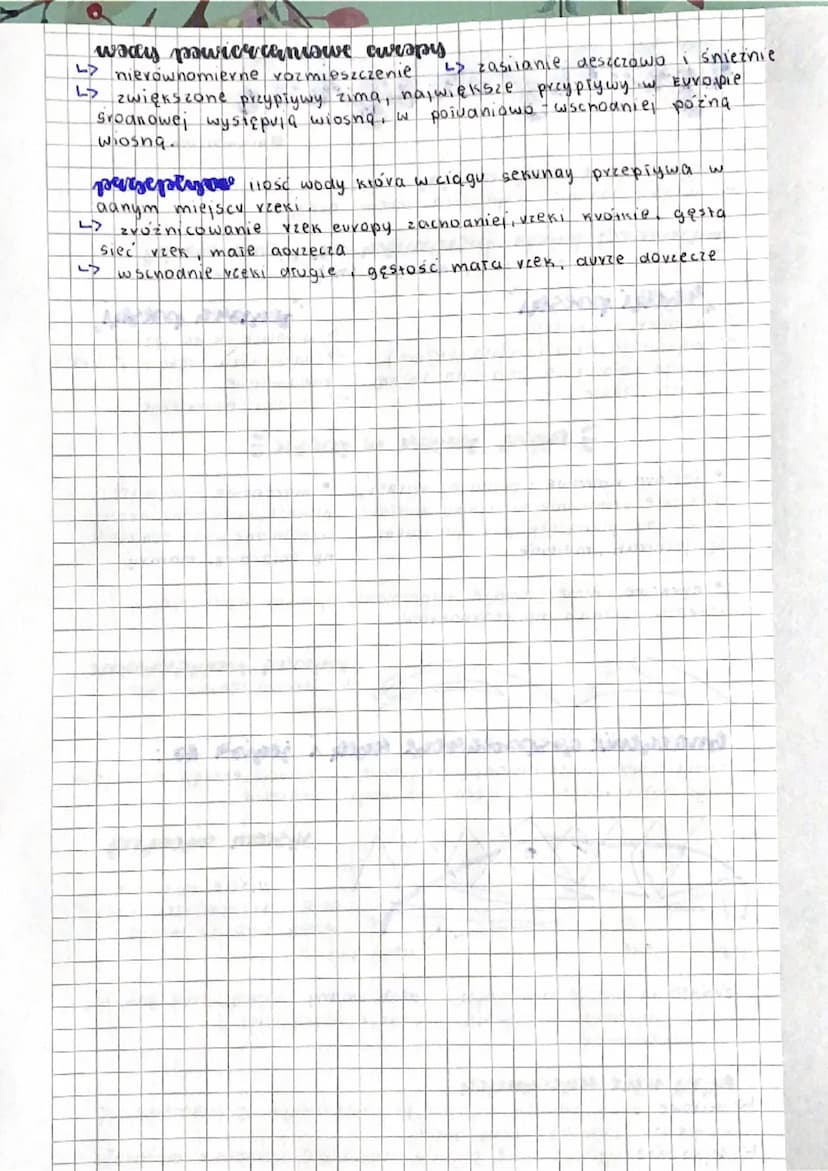 wody powierzchniowe europy
↳ nierównomierne rozmieszczenie ↳ zasilanie deszczowo i śnieżnie
↳ zwiększone przypływy zimą, największe przypływy w Europie
środkowej występują wiosną, w południowo-wschodniej późną
wiosną.
przepływ ilość wody która w ciągu sekundy przepływa w
danym miejscu rzeki.
↳ zróżnicowanie rzek europy zachodniej, rzeki krótkie, gęsta
sieć rzek, małe dorzecza
↳ wschodnie rzeki długie, gęstość mała rzek, duże dorzecze